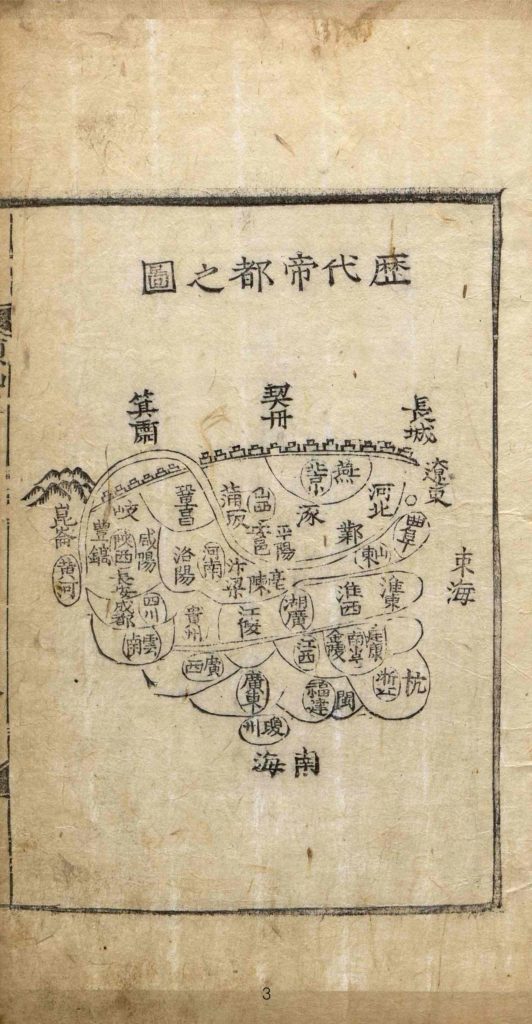 歷代帝都之圖
長城
契丹
箕爾
遼東
河北
曲阜
山東
東海
燕
北京
涿
鄴
山西
平陽
安邑
蒲坂
鞏昌
岐
崑崙
黃河
豐鎬
咸陽
陝西
長安
成都
四川
雲南
洛陽
河南
汴梁
陳
亳
淮東
淮西
湖廣
江陵
貴州
江西
金陵
南京
建康
杭
浙江
閩
福建
廣東
廣西
瓊州
南海
3